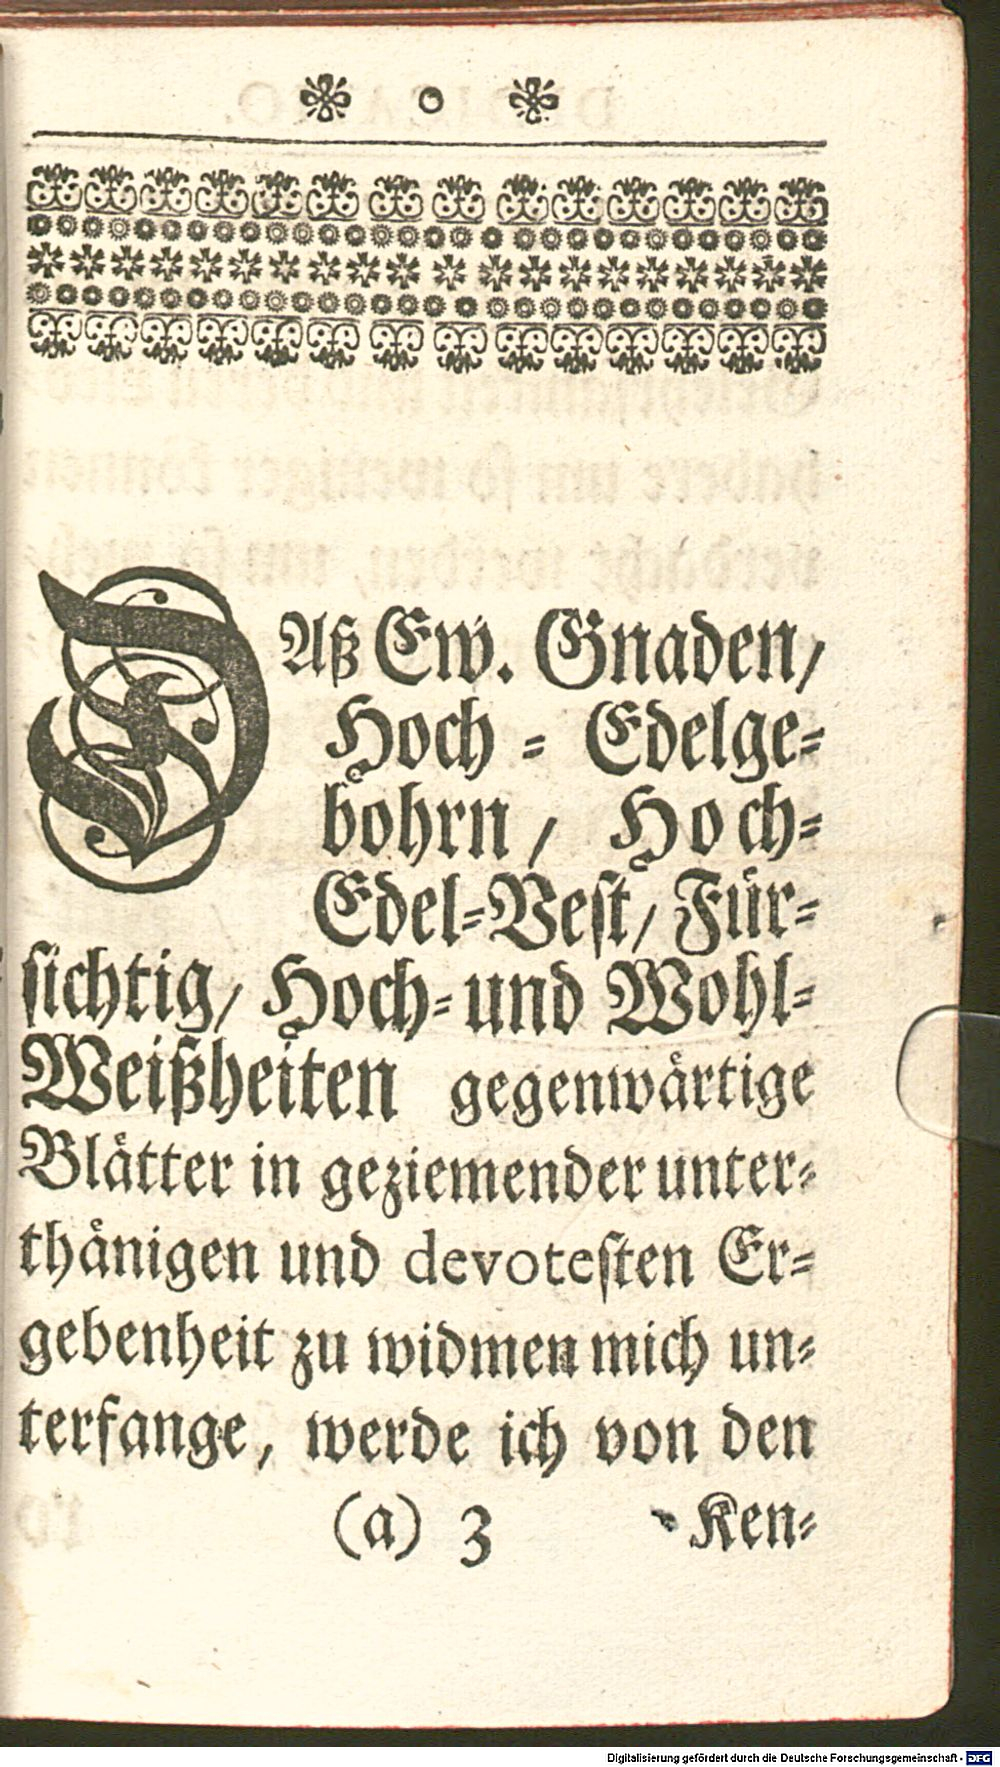 DAß Ew. Gnaden/
Hoch = Edelge=
bohrn / Hoch=
Edel=Vest/ Für=
sichtig/ Hoch= und Wohl=
Weißheiten gegenwärtige
Blätter in geziemender unter=
thänigen und devotesten Er=
gebenheit zu widmen mich un=
terfange, werde ich von den
(a) 3 Ken=
Digitalisierung gefördert durch die Deutsche Forschungsgemeinschaft - DFG